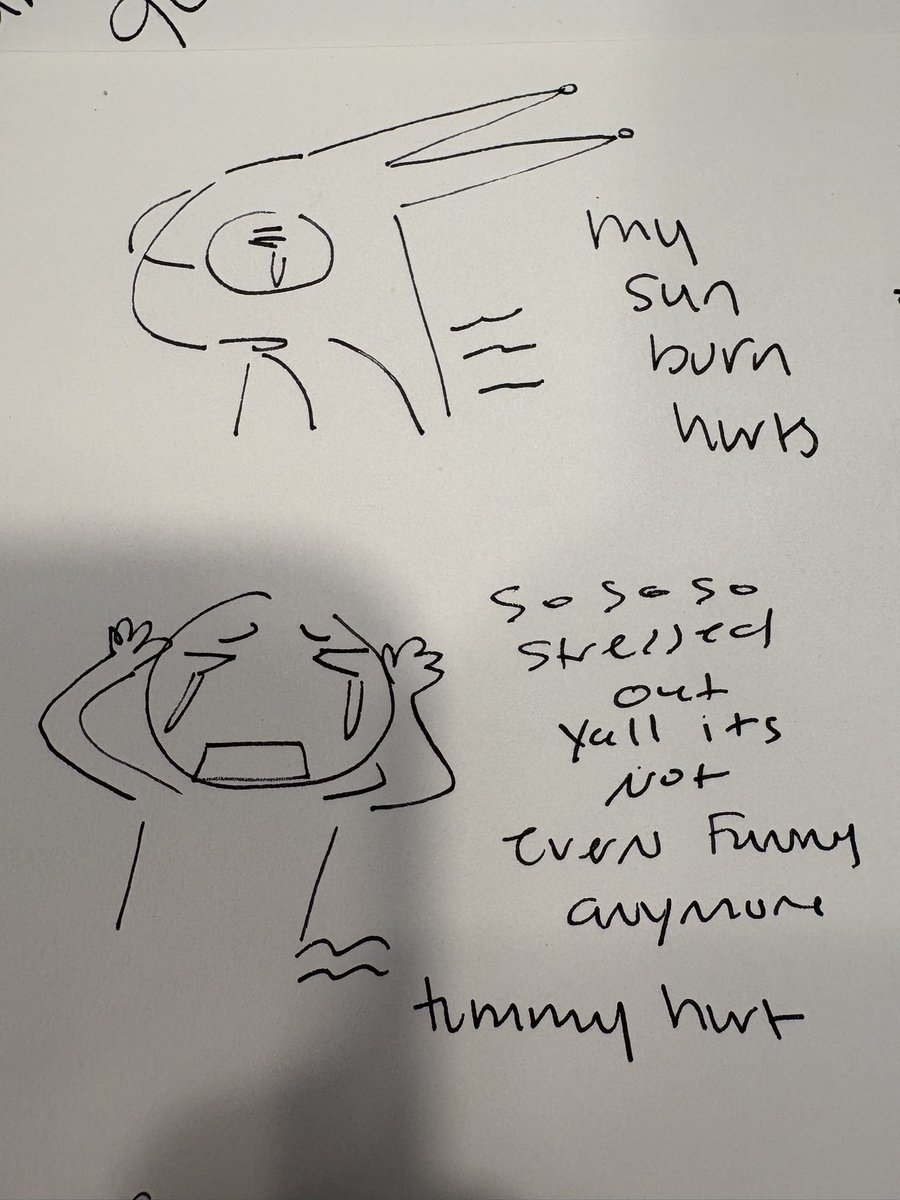 my
sun
burn
hurts
so so so
stressed
out
yall its
not
even funny
anymore
tummy hurt